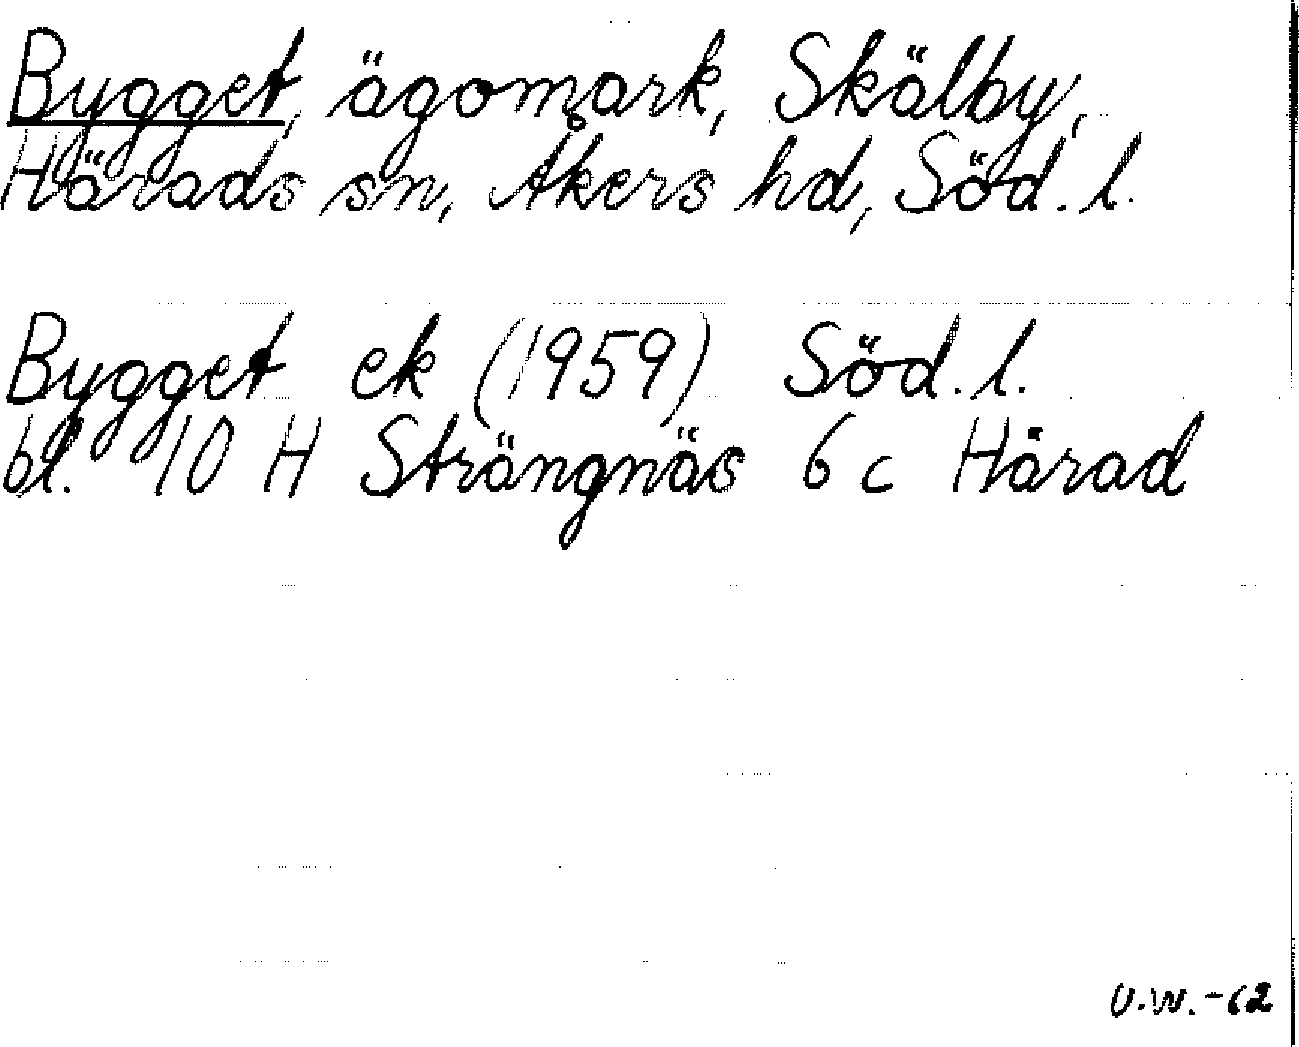 Bygget, ägomark, Skälby,
Härads sn, Åkers hd, Söd. l.
Bygget ek (1959) Söd. l.
bl. 10 H Strängnäs 6 c Härad
U.W.-62